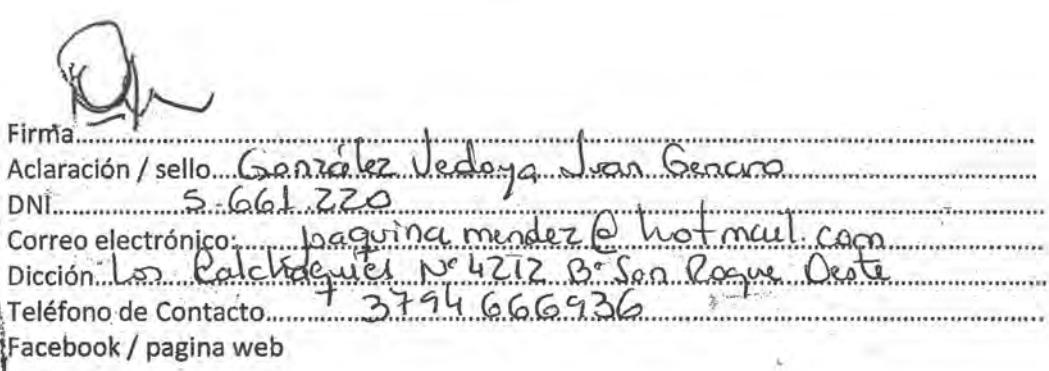 Firma
Aclaración / sello González Vedoya Juan Genaro
DNI 5.661.220
Correo electrónico: joaquina mendez@hotmail.com
Dicción Los N° 4212 B° San Roque Oeste
Teléfono de Contacto 3794 666936
Facebook / pagina web